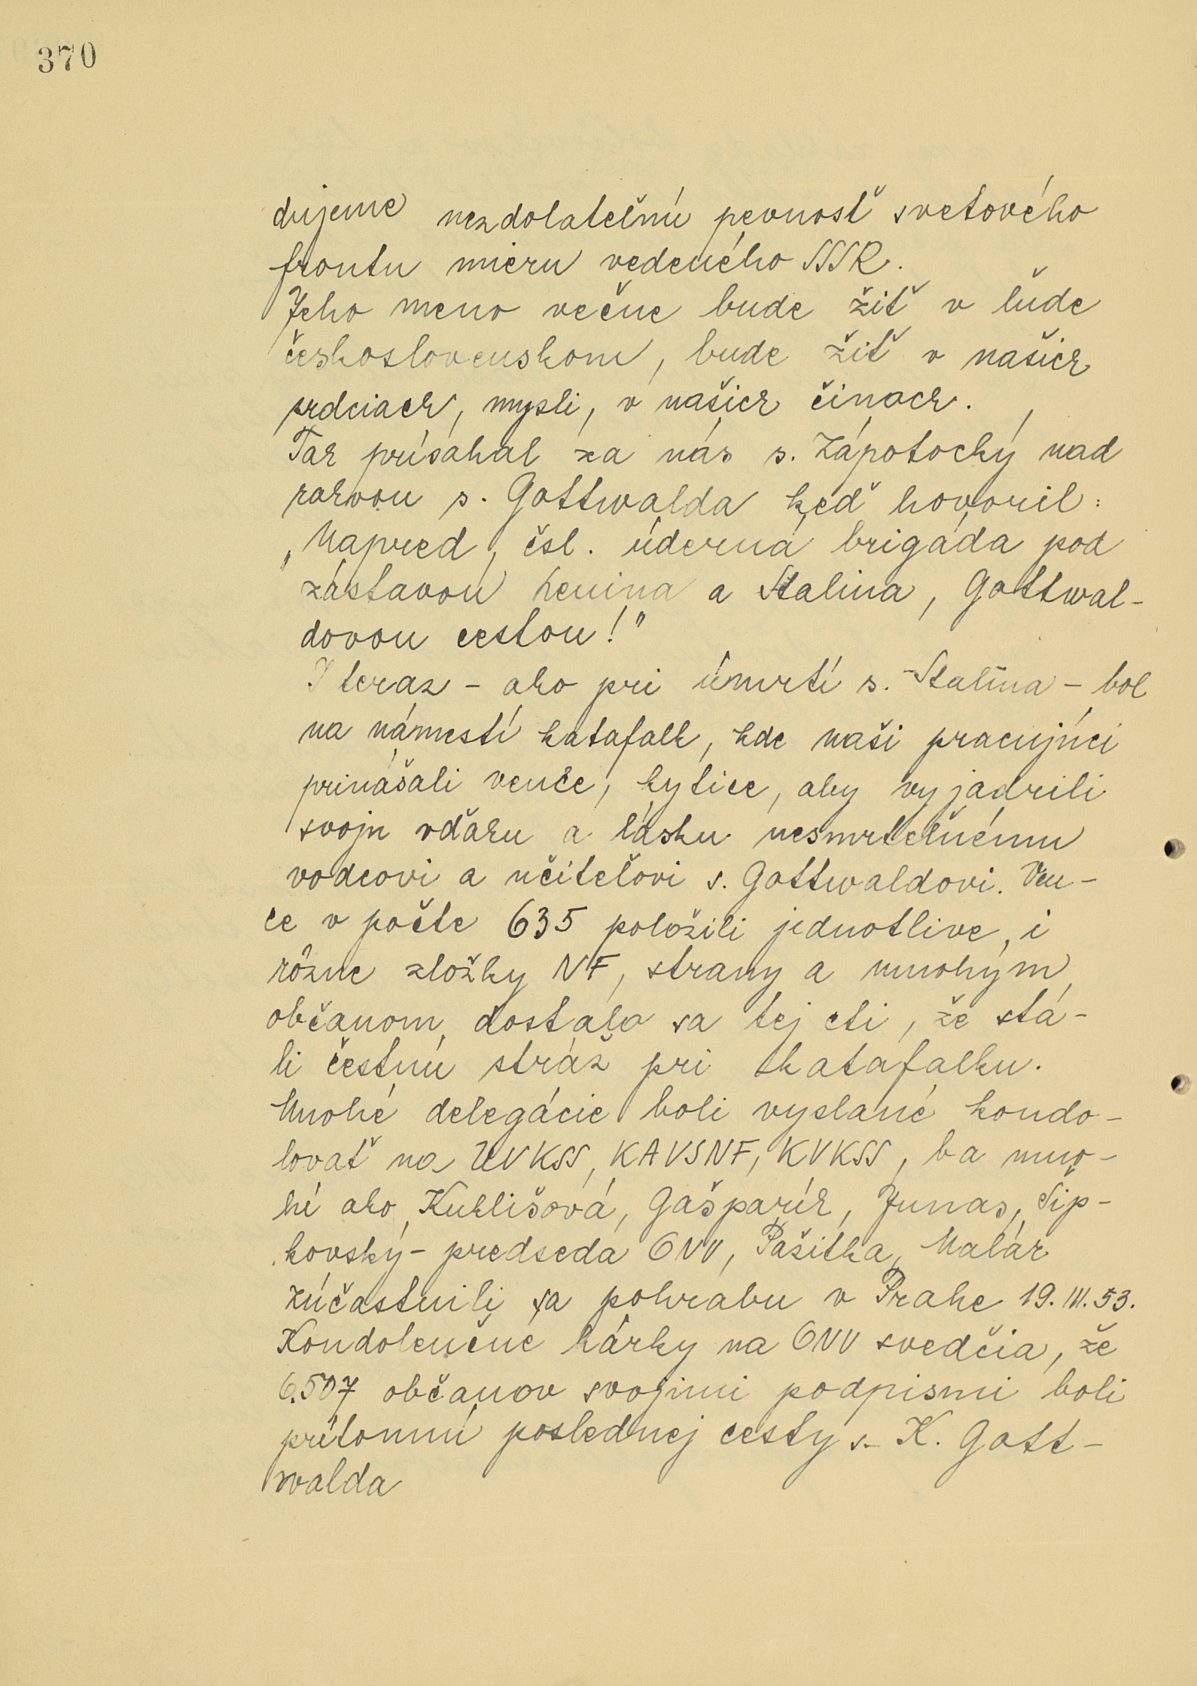 370
dujeme nezdolateľnú pevnosť svetového
frontu mieru vedeného SSSR.
Jeho meno večne bude žiť v ľude
československom, bude žiť v našich
srdciach, mysli, v našich činoch.
Tak prísahal za nás s. Zápotocký nad
rakvou s. Gottwalda keď hovoril:
„Napred, čsl. úderná brigáda pod
zástavou Lenina a Stalina, Gottwal-
dovou cestou!"
I teraz - ako pri úmrtí s. Stalina - bol
na námestí katafalk, kde naši pracujúci
prinášali vence, kytice, aby vyjadrili
svoju vďaku a lásku nesmrteľnému
vodcovi a učiteľovi s. Gottwaldovi. Ven-
ce v počte 635 položili jednotlive, i
rôzne zložky NF, strany a mnohým
občanom dostalo sa tej cti, že stá-
li čestnú stráž pri katafalku.
Mnohé delegácie boli vyslané kondo-
lovať na ÚVKSS, KAVSNF, KVKSS, ba mno-
hí ako Kuklišová, Gašparík, Junas, Sip-
kovský - predseda ONV, Pašitka, Malár
zúčastnili sa pohrabu v Prahe 19. III. 53.
Kondolenčné hárky na ONV svedčia, že
6.507 občanov svojimi podpismi boli
prítomní poslednej cesty s. K. Gott-
walda